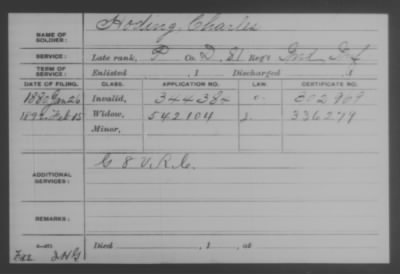 NAME OF SOLDIER: Hoding, Charles
SERVICE: Late rank, P Co. D, 81 Reg't Ind Inf
TERM OF SERVICE: Enlisted , 1 Discharged , 1
DATE OF FILING. CLASS. APPLICATION NO. LAW. CERTIFICATE NO.
1880 Jan 26 Invalid, 344384 302909
1892 Feb 15 Widow, 542104 336279
Minor,
ADDITIONAL SERVICES: G 8 V.R.C.
REMARKS:
Died , 1 , at